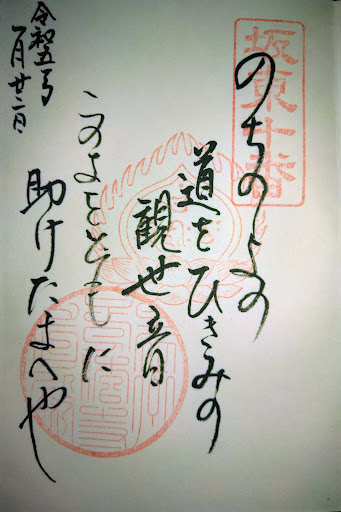 坂東十番
のちのよの
道をひきみの
観世音
このよをともに
助けたまへや
令和五年
一月廿二日